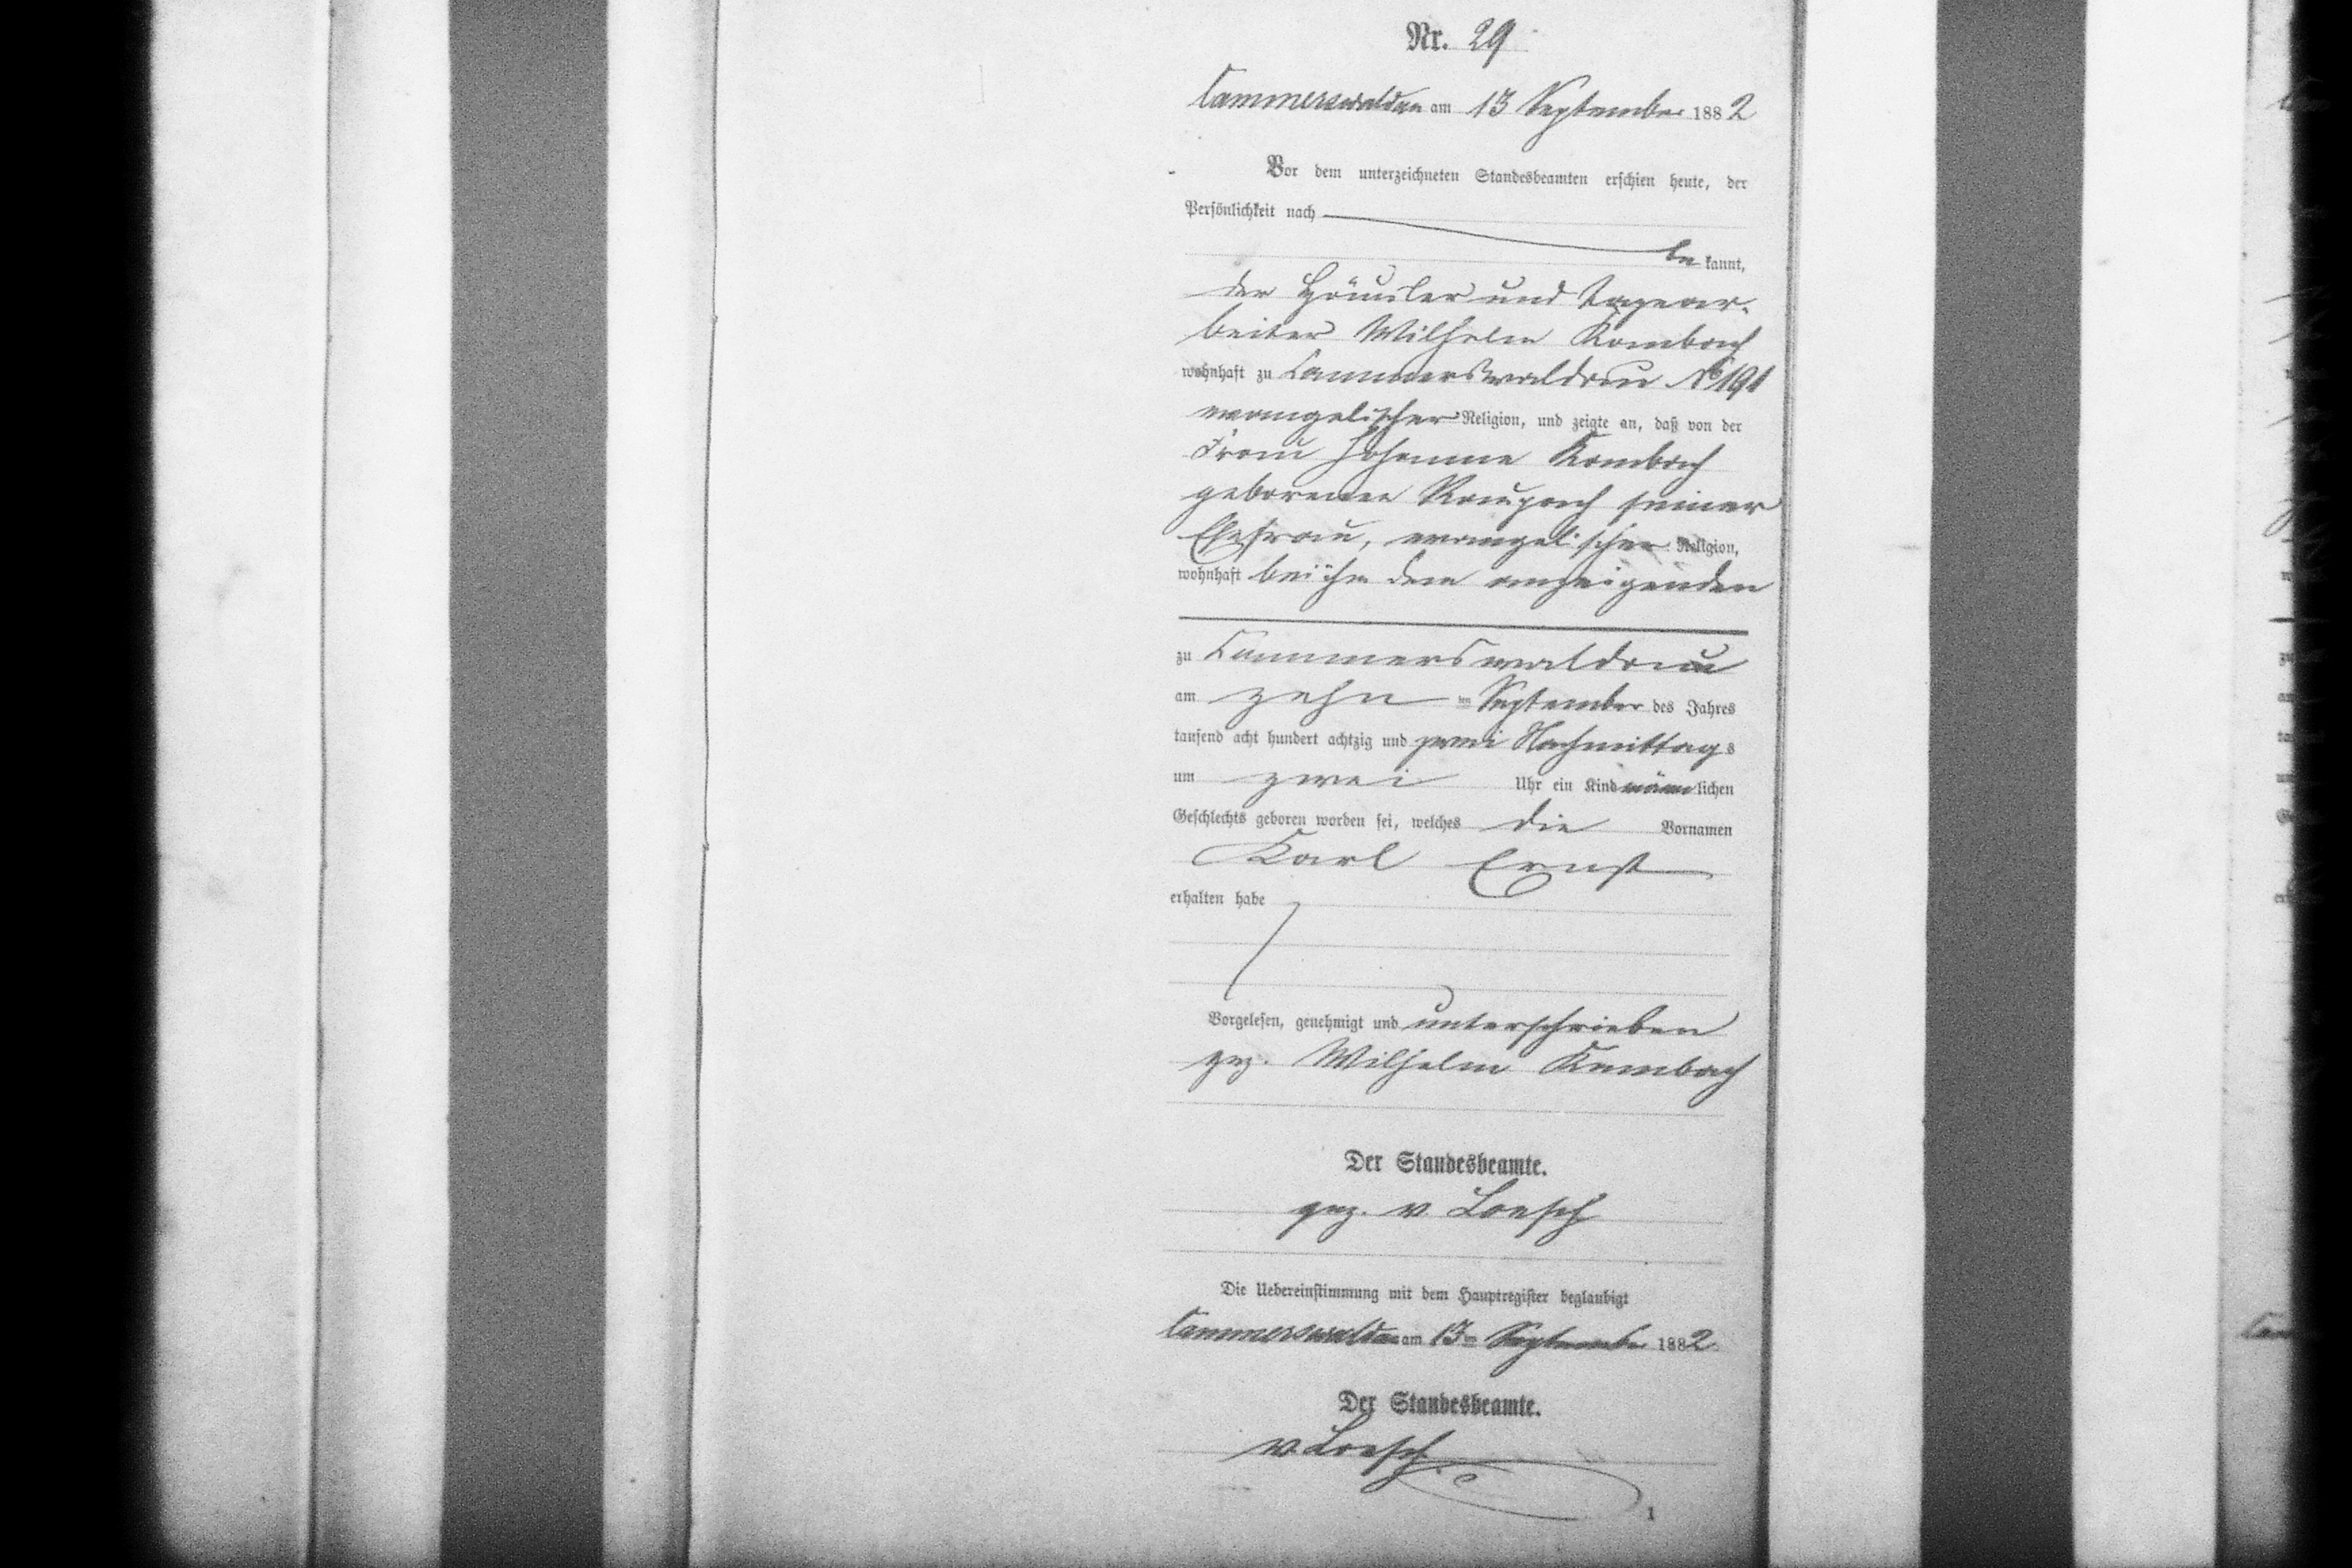 Nr. 29
Cammerswaldau am 13 September 1882
Vor dem unterzeichneten Standesbeamten erschien heute, der
Persönlichkeit nach
be kannt,
der Häusler und Tagear-
beiter Wilhelm Kambach
wohnhaft zu Cammerswaldau No 191
evangelischer Religion, und zeigte an, daß von der
Frau Johanne Kambach
geborenen Raupach seiner
Ehefrau, evangelischer Religion,
wohnhaft bei ihm dem anzeigenden
zu Cammerswaldau
am zehn ten September des Jahres
tausend acht hundert achtzig und zwei Nachmittags
um zwei Uhr ein Kind männlichen
Geschlechts geboren worden sei, welches die Vornamen
Karl Ernst
erhalten habe
Vorgelesen, genehmigt und unterschrieben
gez. Wilhelm Kambach
Der Standesbeamte.
gez. v Loesch
Die Uebereinstimmung mit dem Hauptregister beglaubigt
Cammerswaldau am 13ten September 1882
Der Standesbeamte.
v Loesch
1